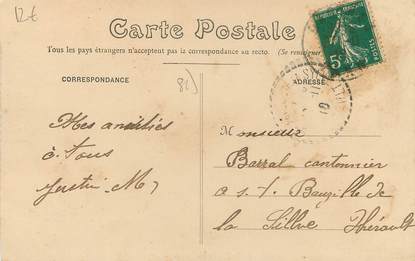 12€
Carte Postale
Tous les pays étrangers n'acceptent pas la correspondance au recto. (Se renseigner
RÉPUBLIQUE FRANÇAISE
5
POSTES
CORRESPONDANCE
82)
ADRESSE
Mes amitiés
à Tous
Justin M
Monsieur
Barral cantonnier
a s.t Bauzille de
la Sillve Hérault